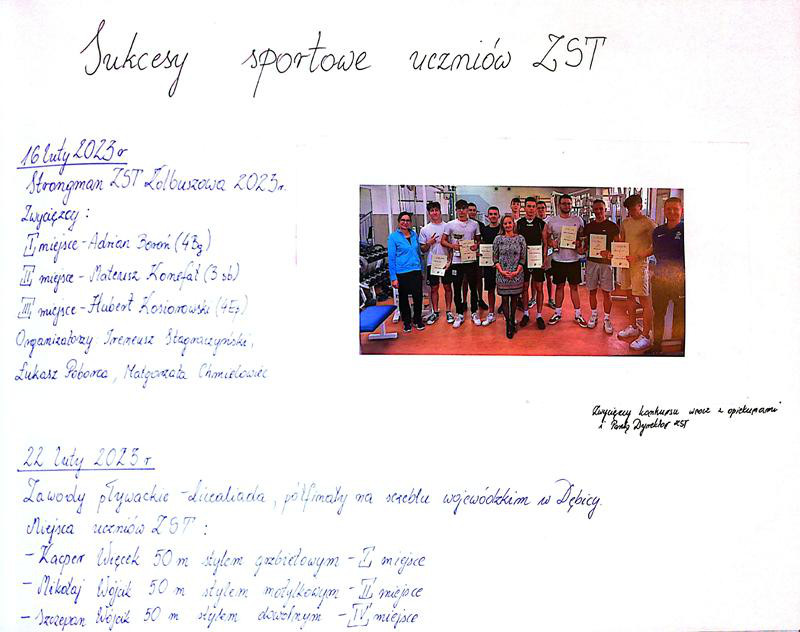 Sukcesy sportowe uczniów ZST
16 luty 2023 r
Strongman ZST Kolbuszowa 2023r.
Zwycięzcy :
I miejsce - Adrian Boroń (4Bg)
II miejsce - Mateusz Konefał (3 sb)
III miejsce - Hubert Kosiorowski (4Ep)
Organizatorzy Ireneusz
Łukasz Poborca, Małgorzata Chmielowiec
Zwycięzcy konkursu wraz z opiekunami
i Panią Dyrektor ZST
22 luty 2023 r
Zawody pływackie - Licealiada, półfinały na szczeblu wojewódzkim w Dębicy.
Miejsca uczniów ZST :
- Kacper Więcek 50 m stylem grzbietowym - I miejsce
- Mikołaj Wójcik 50 m stylem motylkowym - II miejsce
- Szczepan Wójcik 50 m stylem dowolnym - IV miejsce